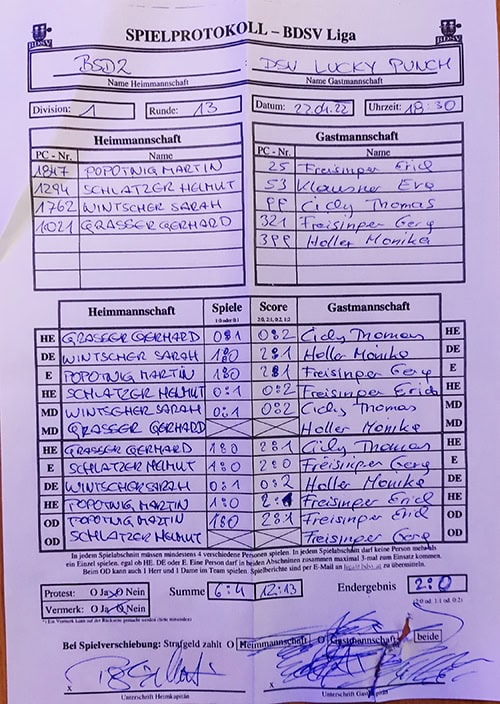 SPIELPROTOKOLL – BDSV Liga
BDSV BDSV
BSD2 : DSV LUCKY PUNCH
Name Heimmannschaft Name Gastmannschaft
Division: 1 Runde: 13 Datum: 22.04.22 Uhrzeit: 18:30
Heimmannschaft Gastmannschaft
PC - Nr. Name PC - Nr. Name
1847 POPOTNIG MARTIN 25 Freisinger Erich
1294 SCHLATZER HELMUT 53 Klausner Eva
1762 WINTSCHER SARAH PP Cidy Thomas
1021 GRASSER GERHARD 321 Freisinger Gery
3PP Holler Monika
Heimmannschaft Spiele Score Gastmannschaft
1:0 oder 0:1 2:0, 2:1, 0:2, 1:2
HE GRASSER GERHARD 0:1 0:2 Cidy Thomas HE
DE WINTSCHER SARAH 1:0 2:1 Holler Monika DE
E POPOTNIG MARTIN 1:0 2:1 Freisinger Gery E
HE SCHLATZER HELMUT 0:1 0:2 Freisinger Erich HE
MD WINTSCHER SARAH 0:1 0:2 Cidy Thomas MD
MD GRASSER GERHARD Holler Monika MD
HE GRASSER GERHARD 1:0 2:1 Cidy Thomas HE
E SCHLATZER HELMUT 1:0 2:0 Freisinger Gery E
DE WINTSCHER SARAH 0:1 0:2 Holler Monika DE
HE POPOTNIG MARTIN 1:0 2:1 Freisinger Erich HE
OD POPOTNIG MARTIN 1:0 2:1 Freisinger Erich OD
OD SCHLATZER HELMUT Freisinger Gery OD
In jedem Spielabschnitt müssen mindestens 4 verschiedene Personen spielen. In jedem Spielabschnitt darf keine Person mehr als
ein Einzel spielen, egal ob HE, DE oder E. Eine Person darf in beiden Abschnitten zusammen maximal 3-mal zum Einsatz kommen.
Beim OD kann auch 1 Herr und 1 Dame im Team spielen. Spielberichte sind per E-Mail an zu übermitteln.
Protest: O Ja O Nein Summe 6:4 12:13 Endergebnis 2:0
Vermerk: O Ja O Nein (2:0 od. 1:1 od. 0:2)
*) Ein Vermerk kann auf der Rückseite gemacht werden (bitte mitsenden)
Bei Spielverschiebung: Strafgeld zahlt O Heimmannschaft O Gastmannschaft beide
x x
Unterschrift Heimkapitän Unterschrift Gastkapitän